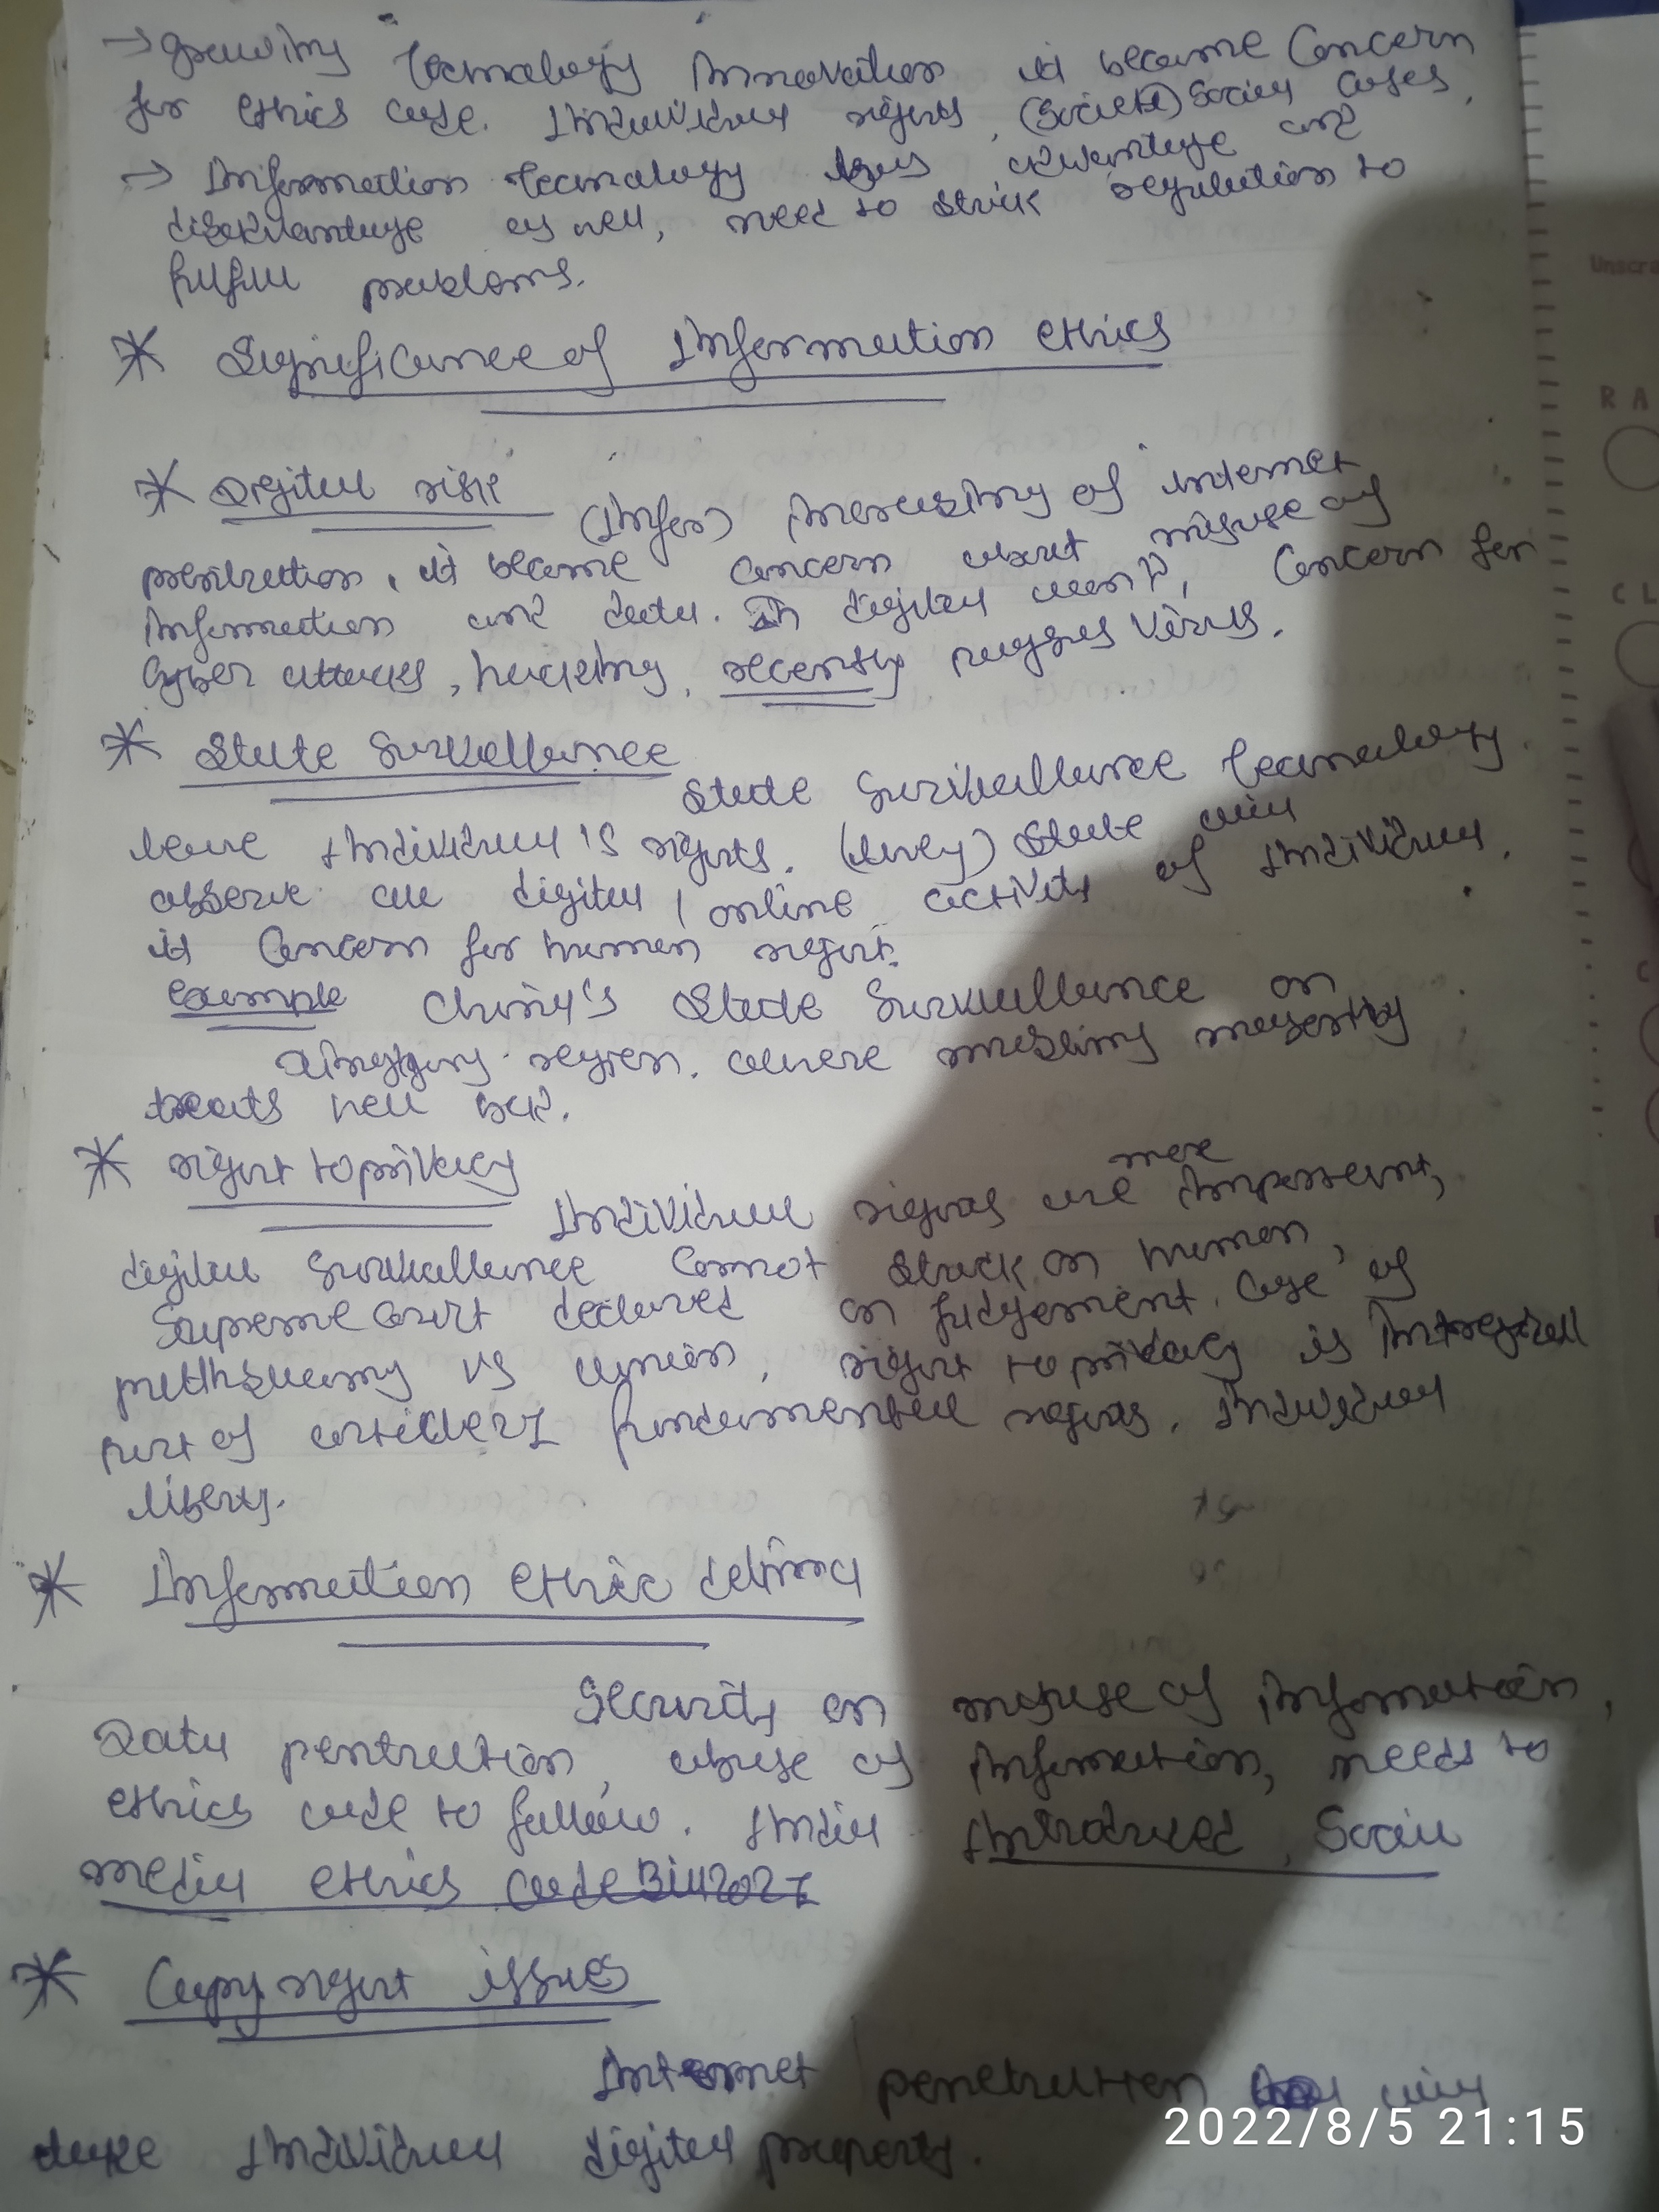 → growing technology innovation it became Concern
for ethics code. Individual rights, (Societe) Social Cases.
→ Information technology has advantage and
disadvantage as well, need to strick regulation to
fulfill problems.
* Significance of Information ethics
* Digital risk
(Infor) increasing of internet
penitration, it became concern about misuse of
information and data. In digital world, Concern for
Cyber attacks, hacking, recently pegasus Virus.
* State Survellance
State Survaillance technology
leave Individual's rights. (they) State will
observe all digital / online activity of Individual.
it Concern for human right.
example China's State Survaillance on
region. where muslims majority
treats well bad.
* right to privacy
more
Individual rights are important,
digital Survaillance Cannot strick on human,
Supreme Court declared on judgement. Case of
putthswamy vs union, right to privacy is integrall
part of article 21 fundamental rights. Individual
liberty.
* Information ethic delima
Security on misuse of information,
Data pentration, abuse of information, needs to
ethics code to follow. India introduced, Social
media ethics code Bill 2021
* Copy right issues
Internet penetration will
take Individual digital property.
2022/8/5 21:15
Unscra
R A
C L
C